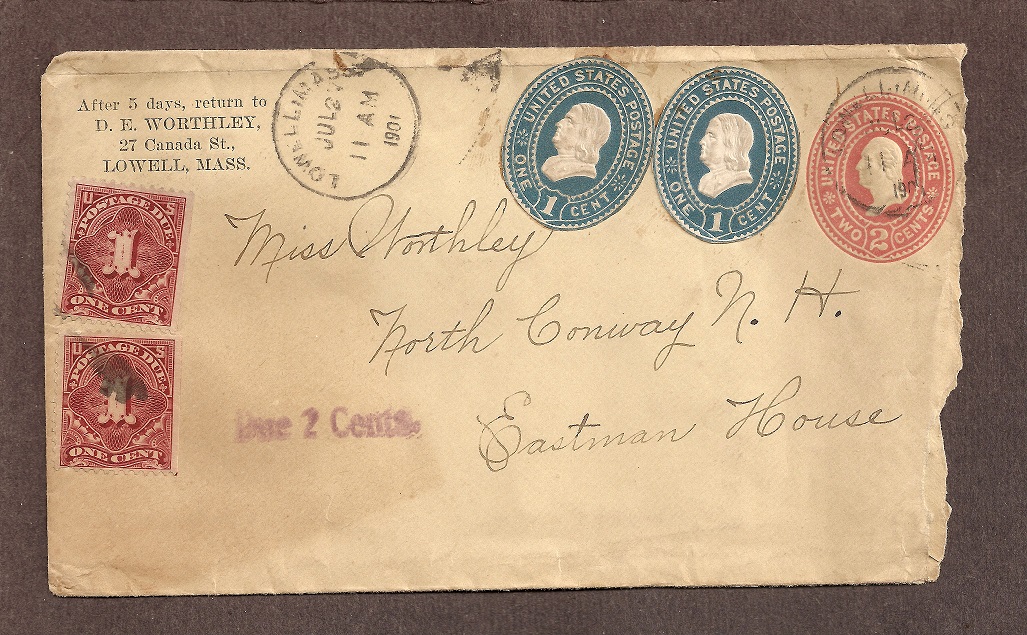 After 5 days, return to
D. E. WORTHLEY,
27 Canada St.,
LOWELL, MASS.
LOWELL, MASS.
JUL
11 AM
1901
UNITED STATES POSTAGE
ONE 1 CENT
UNITED STATES POSTAGE
ONE 1 CENT
UNITED STATES POSTAGE
TWO 2 CENTS
U S
POSTAGE DUE
1
ONE CENT
U S
POSTAGE DUE
1
ONE CENT
Miss Worthley
North Conway N. H.
Eastman House
Due 2 Cents.